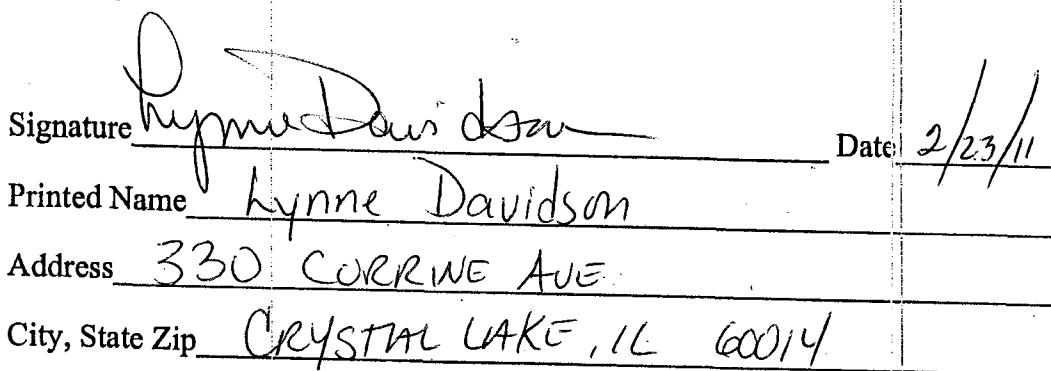 Signature Lynne Davidson Date 2/23/11
Printed Name Lynne Davidson
Address 330 CORRINE AVE
City, State Zip CRYSTAL LAKE, IL 60014